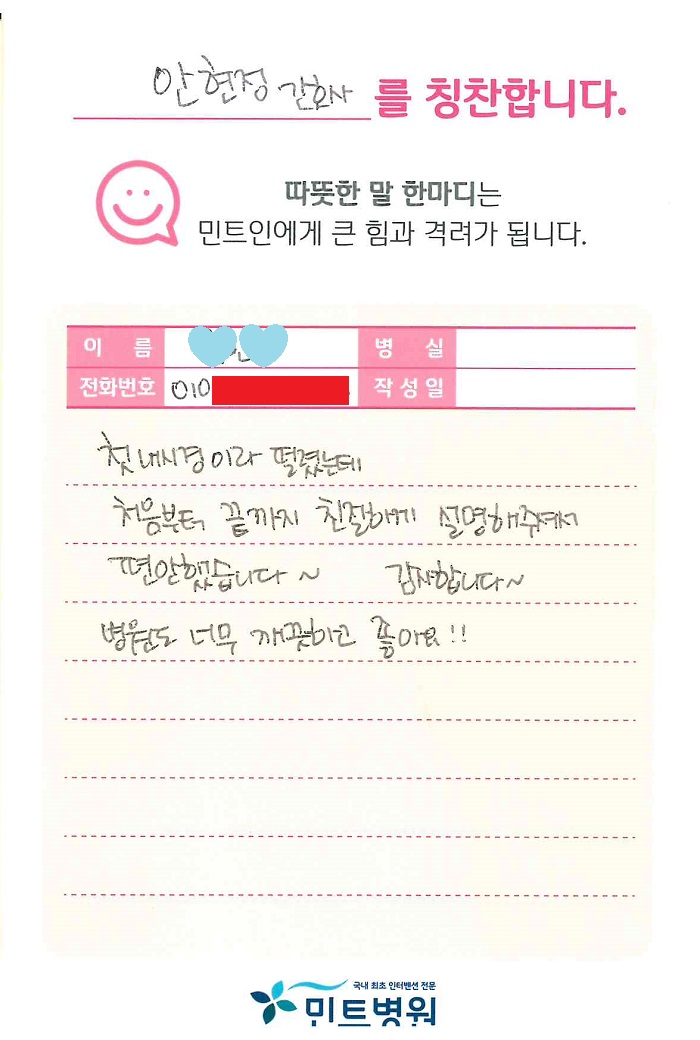 안현정 간호사 를 칭찬합니다.
따뜻한 말 한마디는
민트인에게 큰 힘과 격려가 됩니다.
이 름 병 실
전화번호 010 작성일
첫 내시경이라 떨렸는데
처음부터 끝까지 친절하게 설명해주셔서
편안했습니다~ 감사합니다~
병원도 너무 깨끗하고 좋아요!!
국내 최초 인터벤션 전문
민트병원